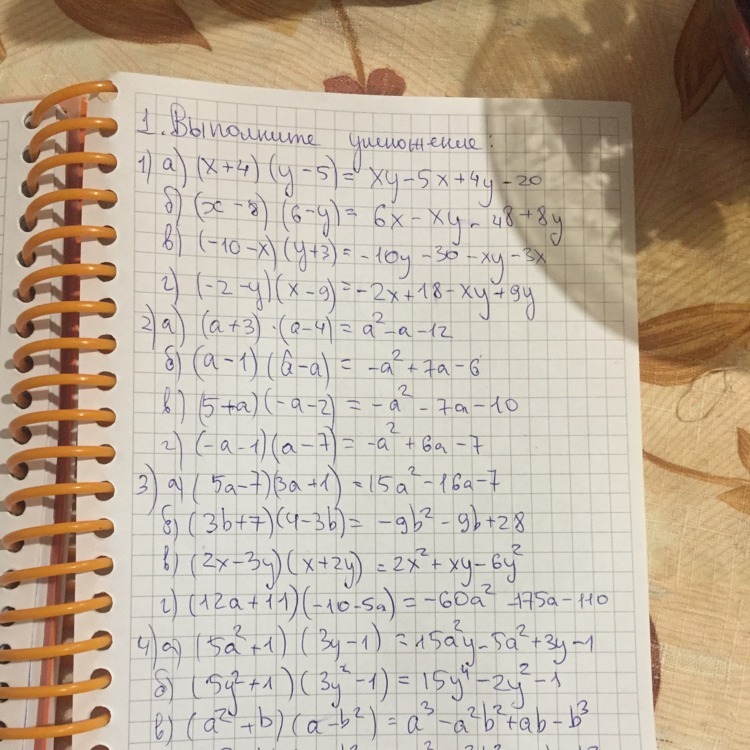 1. Выполните умножение:
1) а) (x+4) (y-5) = xy-5x+4y-20
б) (x-8) (6-y) = 6x-xy-48+8y
в) (-10-x) (y+3) = -10y-30-xy-3x
г) (-2-y) (x-9) = -2x+18-xy+9y
2) а) (a+3) · (a-4) = a²-a-12
б) (a-1) (6-a) = -a²+7a-6
в) (5+a) (-a-2) = -a²-7a-10
г) (-a-1) (a-7) = -a²+6a-7
3) а) (5a-7) (3a+1) = 15a²-16a-7
б) (3b+7) (4-3b) = -9b²-9b+28
в) (2x-3y) (x+2y) = 2x²+xy-6y²
г) (12a+11) (-10-5a) = -60a² -175a-110
4) а) (5a²+1) (3y-1) = 15a²y-5a²+3y-1
б) (5y²+1) (3y²-1) = 15y⁴-2y²-1
в) (a²+b) (a-b²) = a³-a²b²+ab-b³